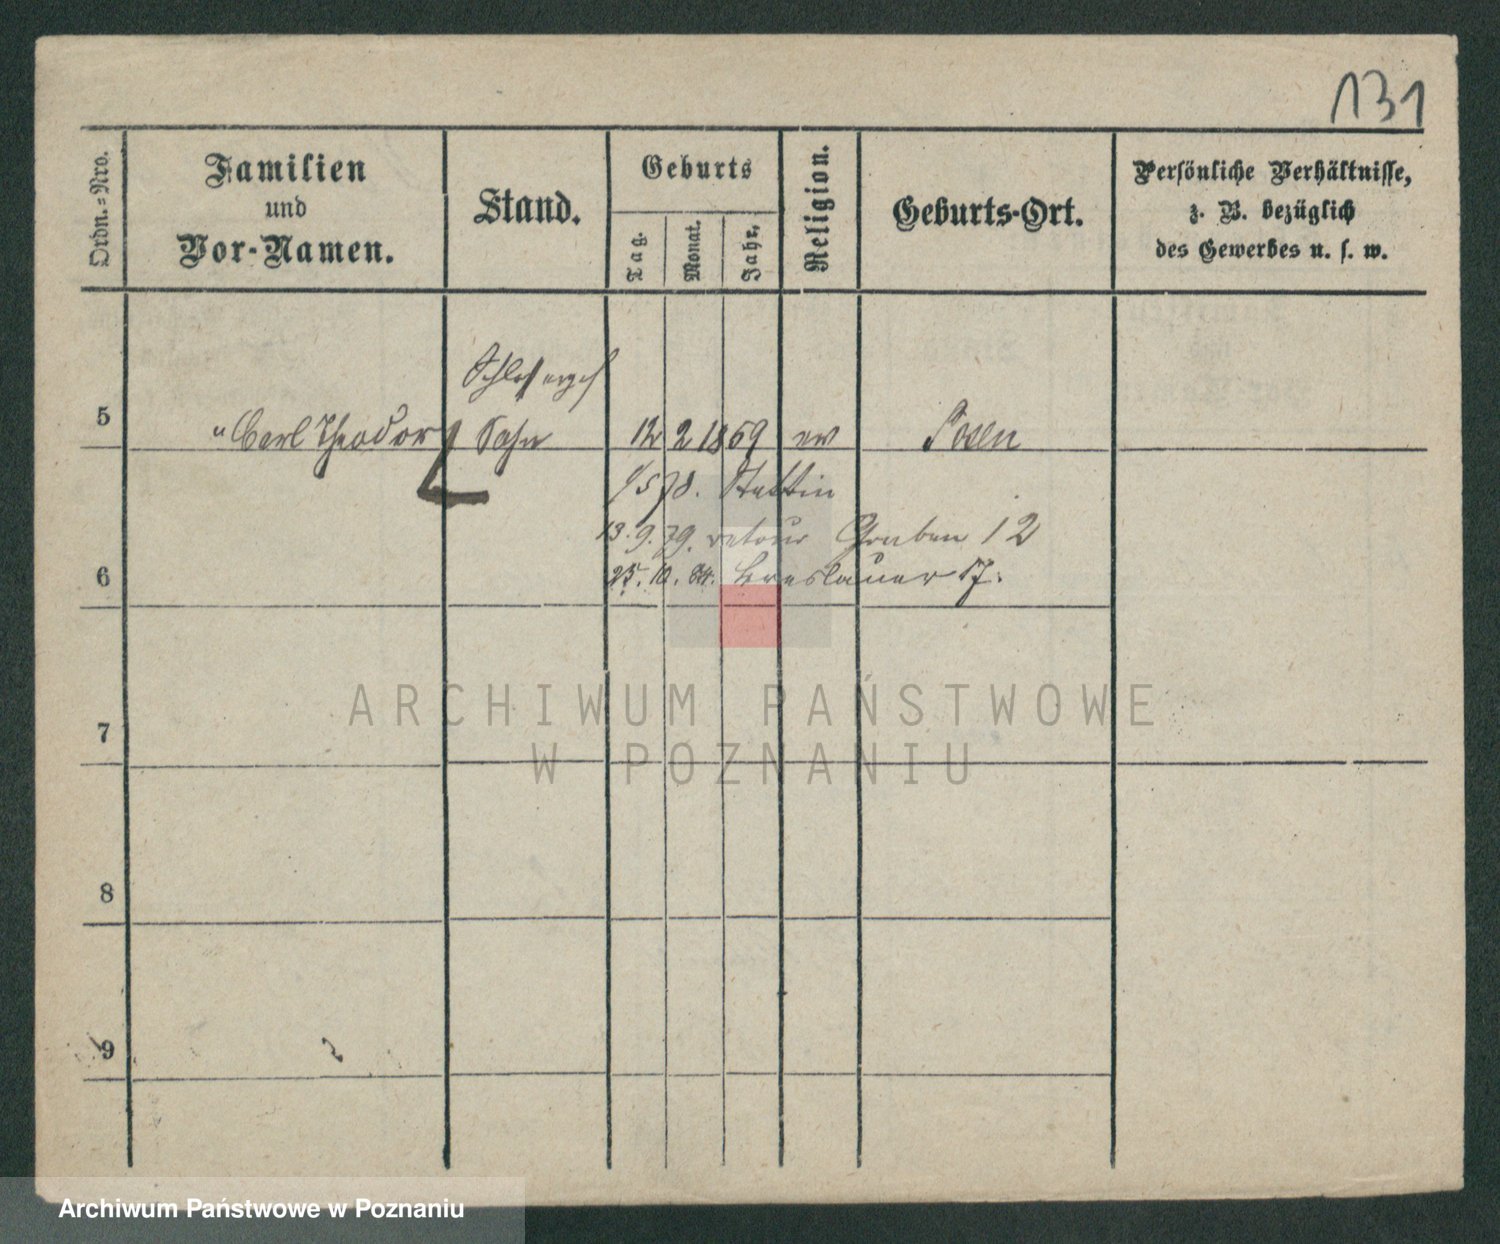 131
Ordn.=Nro.
Familien
und
Vor-Namen.
Stand.
Geburts
Tag.
Monat.
Jahr.
Religion.
Geburts-Ort.
Persönliche Verhältnisse,
z. B. bezüglich
des Gewerbes u. s. w.
Schlosserges
5 " Carl Theodor Sohn 12 2 1859 ev Posen
1/5 78. Stettin
13. 9. 79. retour Graben 12
6 25. 10. 84. Breslauer 17.
ARCHIWUM PAŃSTWOWE
7
W POZNANIU
8
9
Archiwum Państwowe w Poznaniu